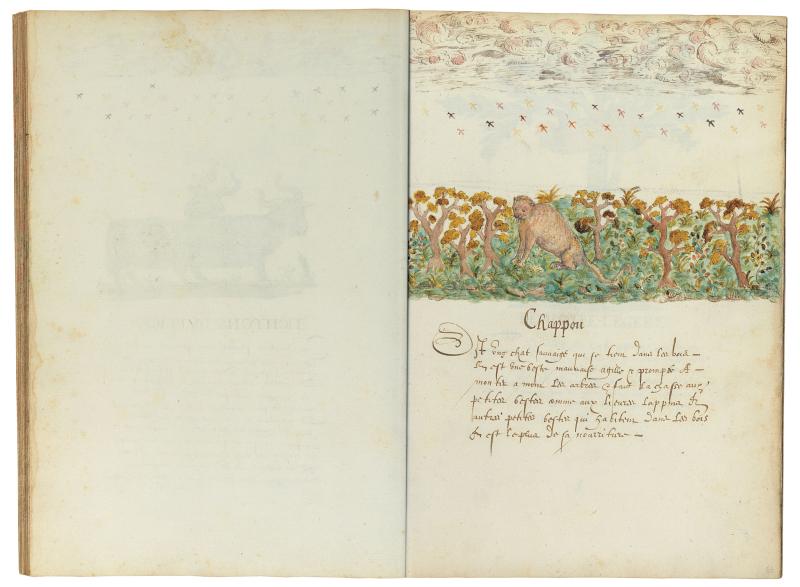 Chappou
Est vng chat sauuaige qui se tient dans les bois
Et est vne beste mauuaise agille & prompte A
monter a mont les arbres & faict la chasse aux
petites bestes comme aux lieures lappins &
autres petites bestes qui habitent dans les bois
& est le plus de sa nourriture